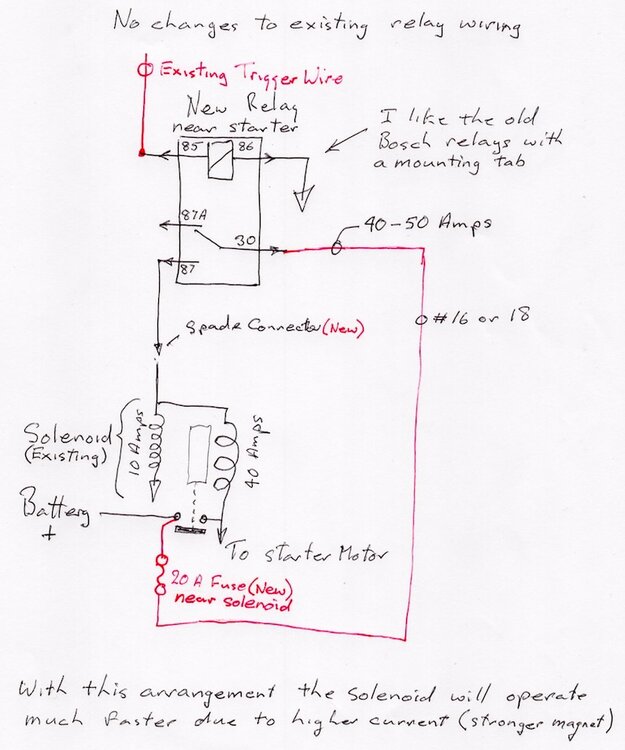 No changes to existing relay wiring
Existing Trigger Wire
New Relay
near starter
I like the old
Bosch relays with
a mounting tab
85
86
87A
30
87
40-50 Amps
Spade Connector (New)
#16 or 18
Solenoid
(Existing)
10 Amps
40 Amps
Battery
+
To starter Motor
20 A Fuse (New)
near solenoid
With this arrangement the solenoid will operate
much faster due to higher current (stronger magnet)